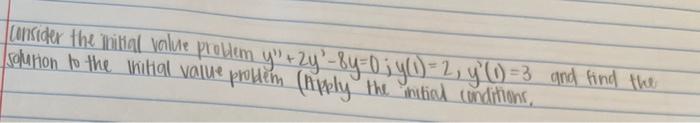 consider the initial value problem y"+2y'-8y=0; y(1)=2, y'(1)=3 and find the
solution to the initial value problem (Apply the initial conditions.